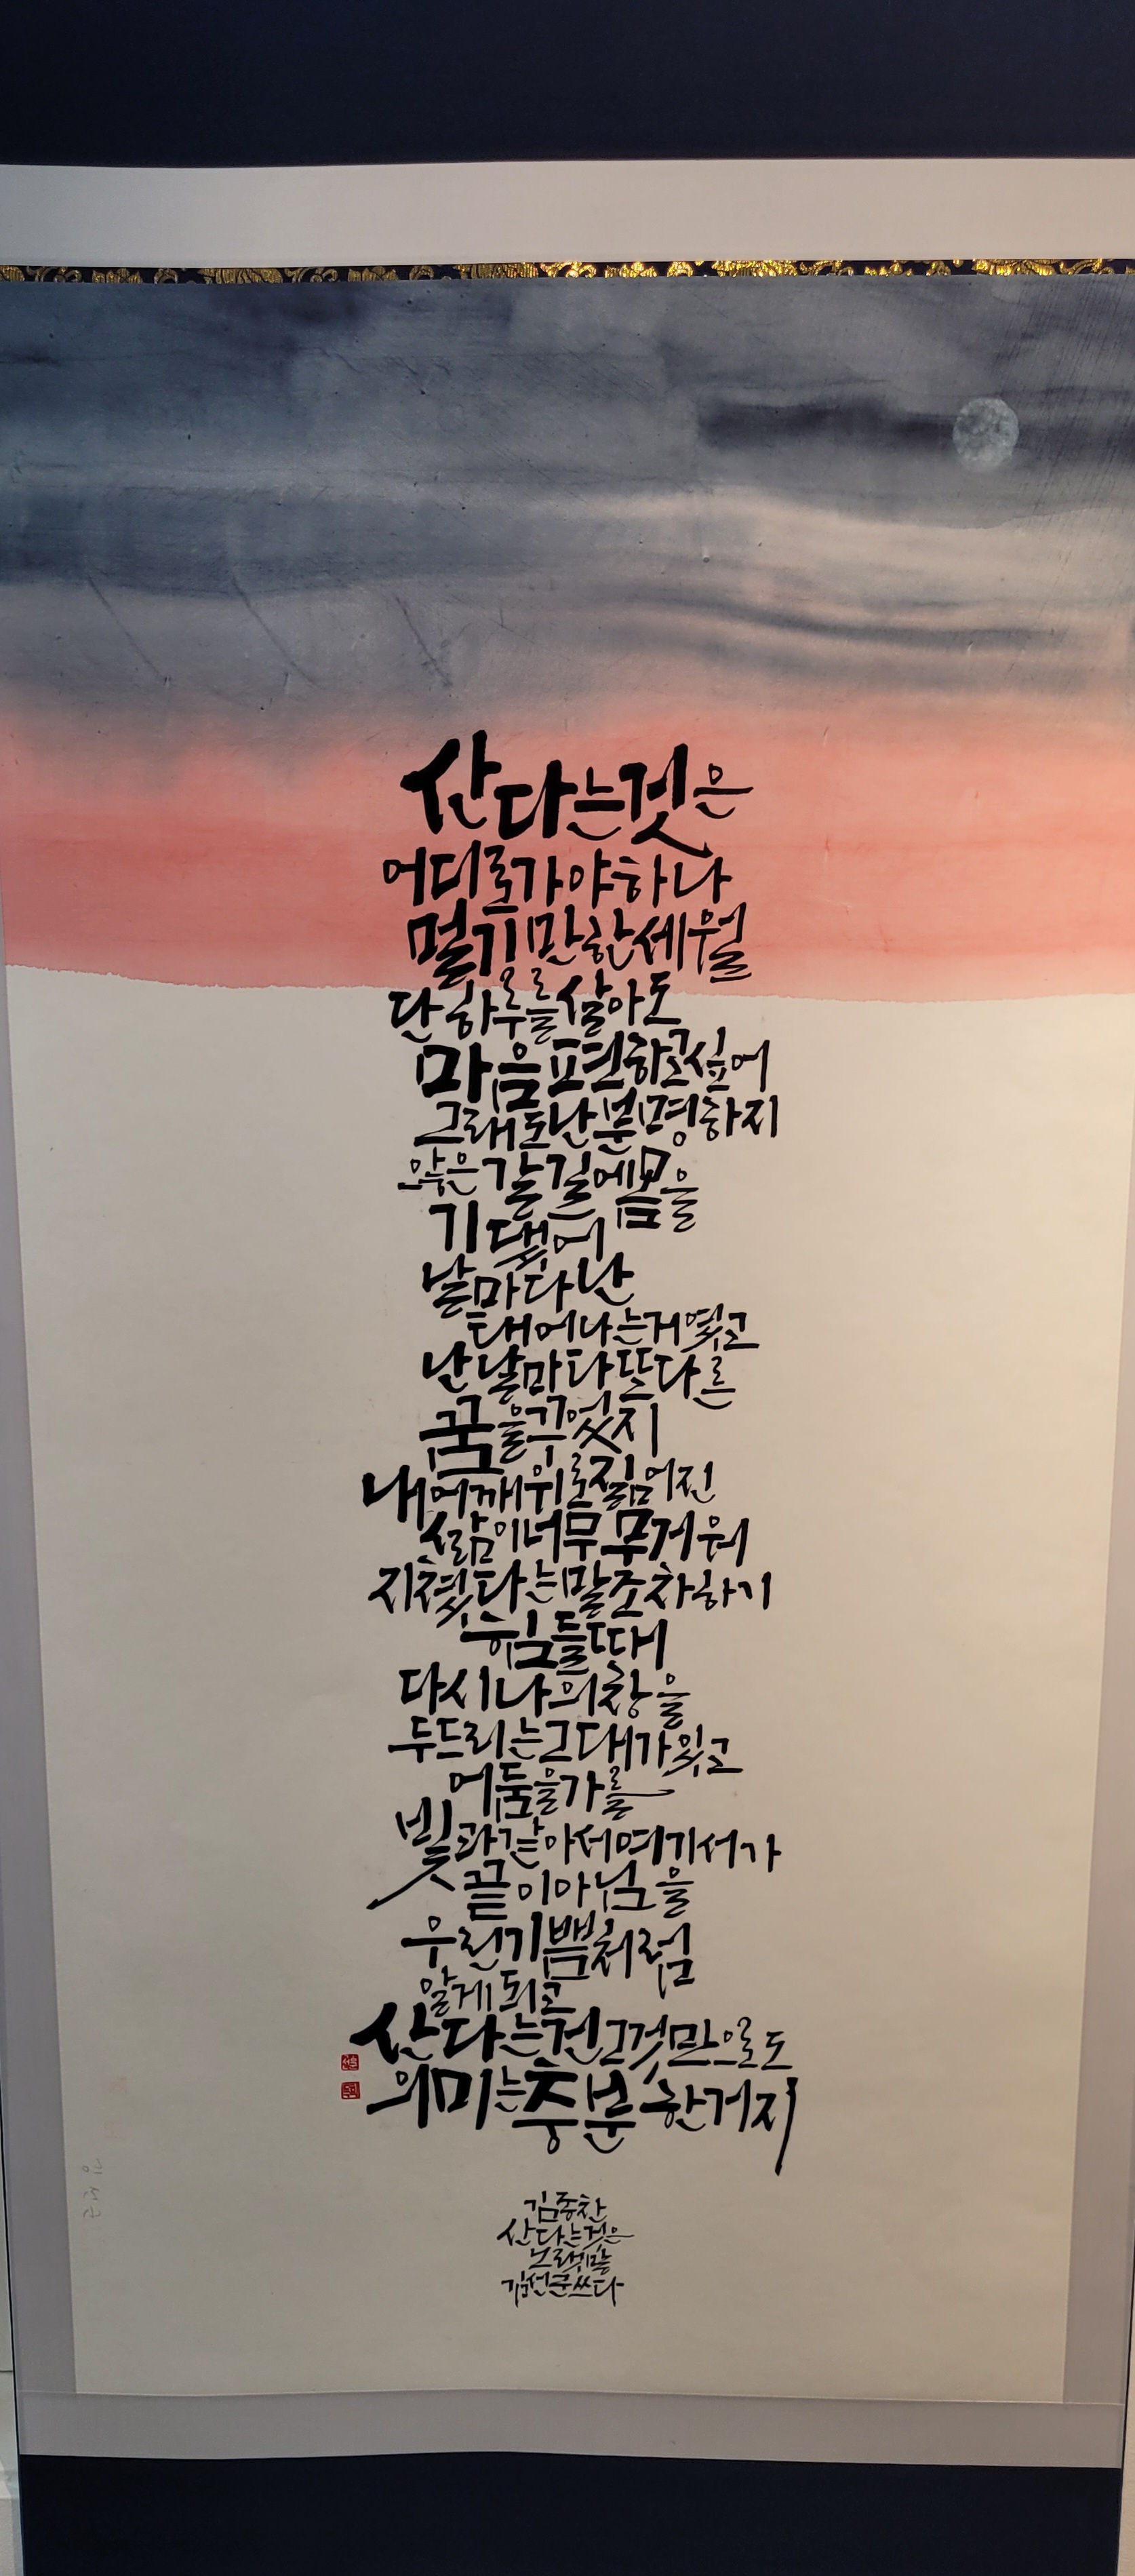 산다는것은
어디로가야하나
멀기만한세월
단하루를살아도
마음편하고싶어
그래도난분명하지
않은갈길에몸을
기댔어
날마다난
태어나는거였고
난날마다또다른
꿈을꾸었지
내어깨위로짊어진
삶이너무무거워
지쳤다는말조차하기
힘들때
다시나의창을
두드리는그대가있고
어둠을가를
빛과같아서여기서가
끝이아님을
우린기쁨처럼
알게되고
산다는건그것만으로도
의미는충분한거지
김종찬
산다는것은
노랫말
김선군쓰다